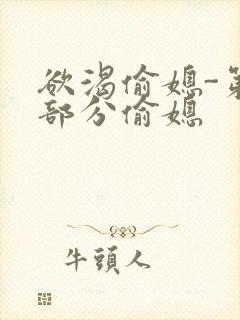 欲渴偷媳-第
部分偷媳
牛頭人